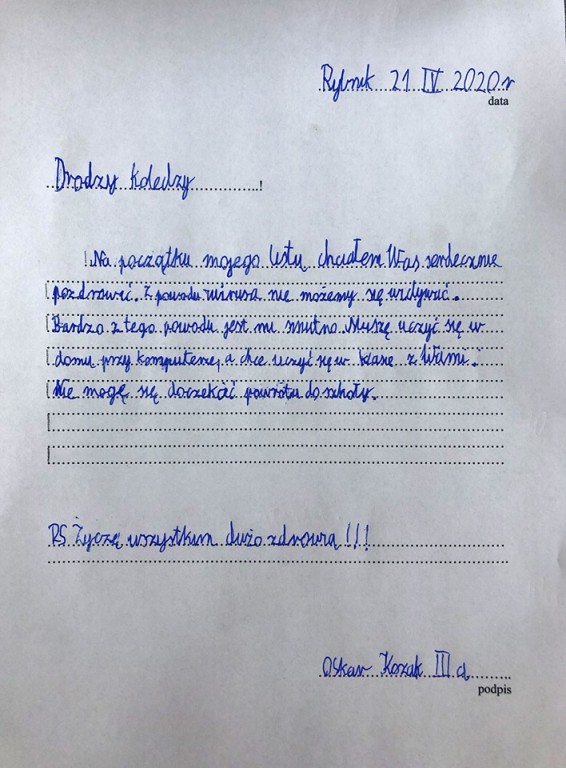 Rybnik 21 IV 2020r
data
Drodzy koledzy !
Na początku mojego listu chciałem Was serdecznie
pozdrowić. Z powodu wirusa nie możemy się widywać.
Bardzo z tego powodu jest mi smutno. Muszę uczyć się w
domu przy komputerze, a chcę uczyć się w klasie z Wami.
Nie mogę się doczekać powrotu do szkoły.
PS Życzę wszystkim dużo zdrowia!!!
Oskar Kozak III d
podpis